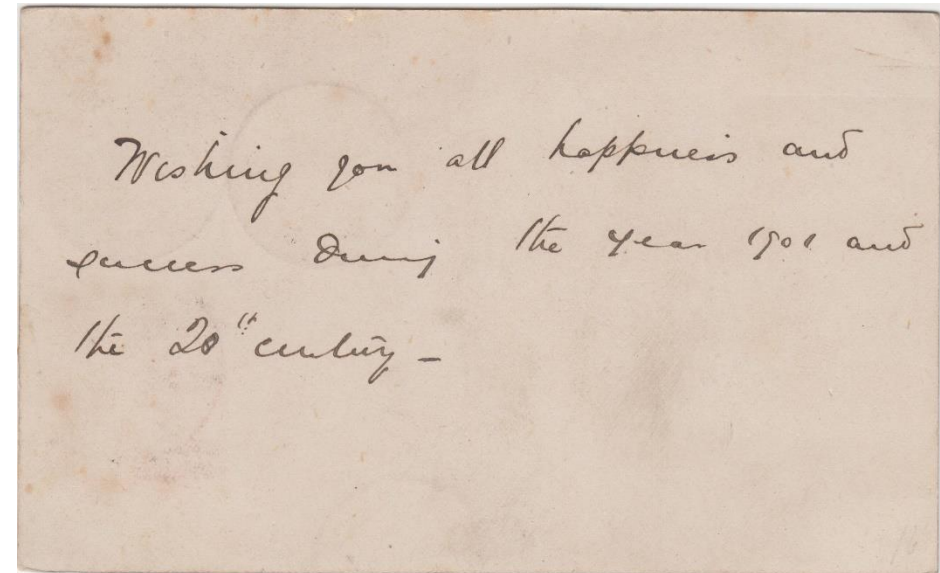 Wishing you all happiness and
success During the year 1901 and
the 20th century –